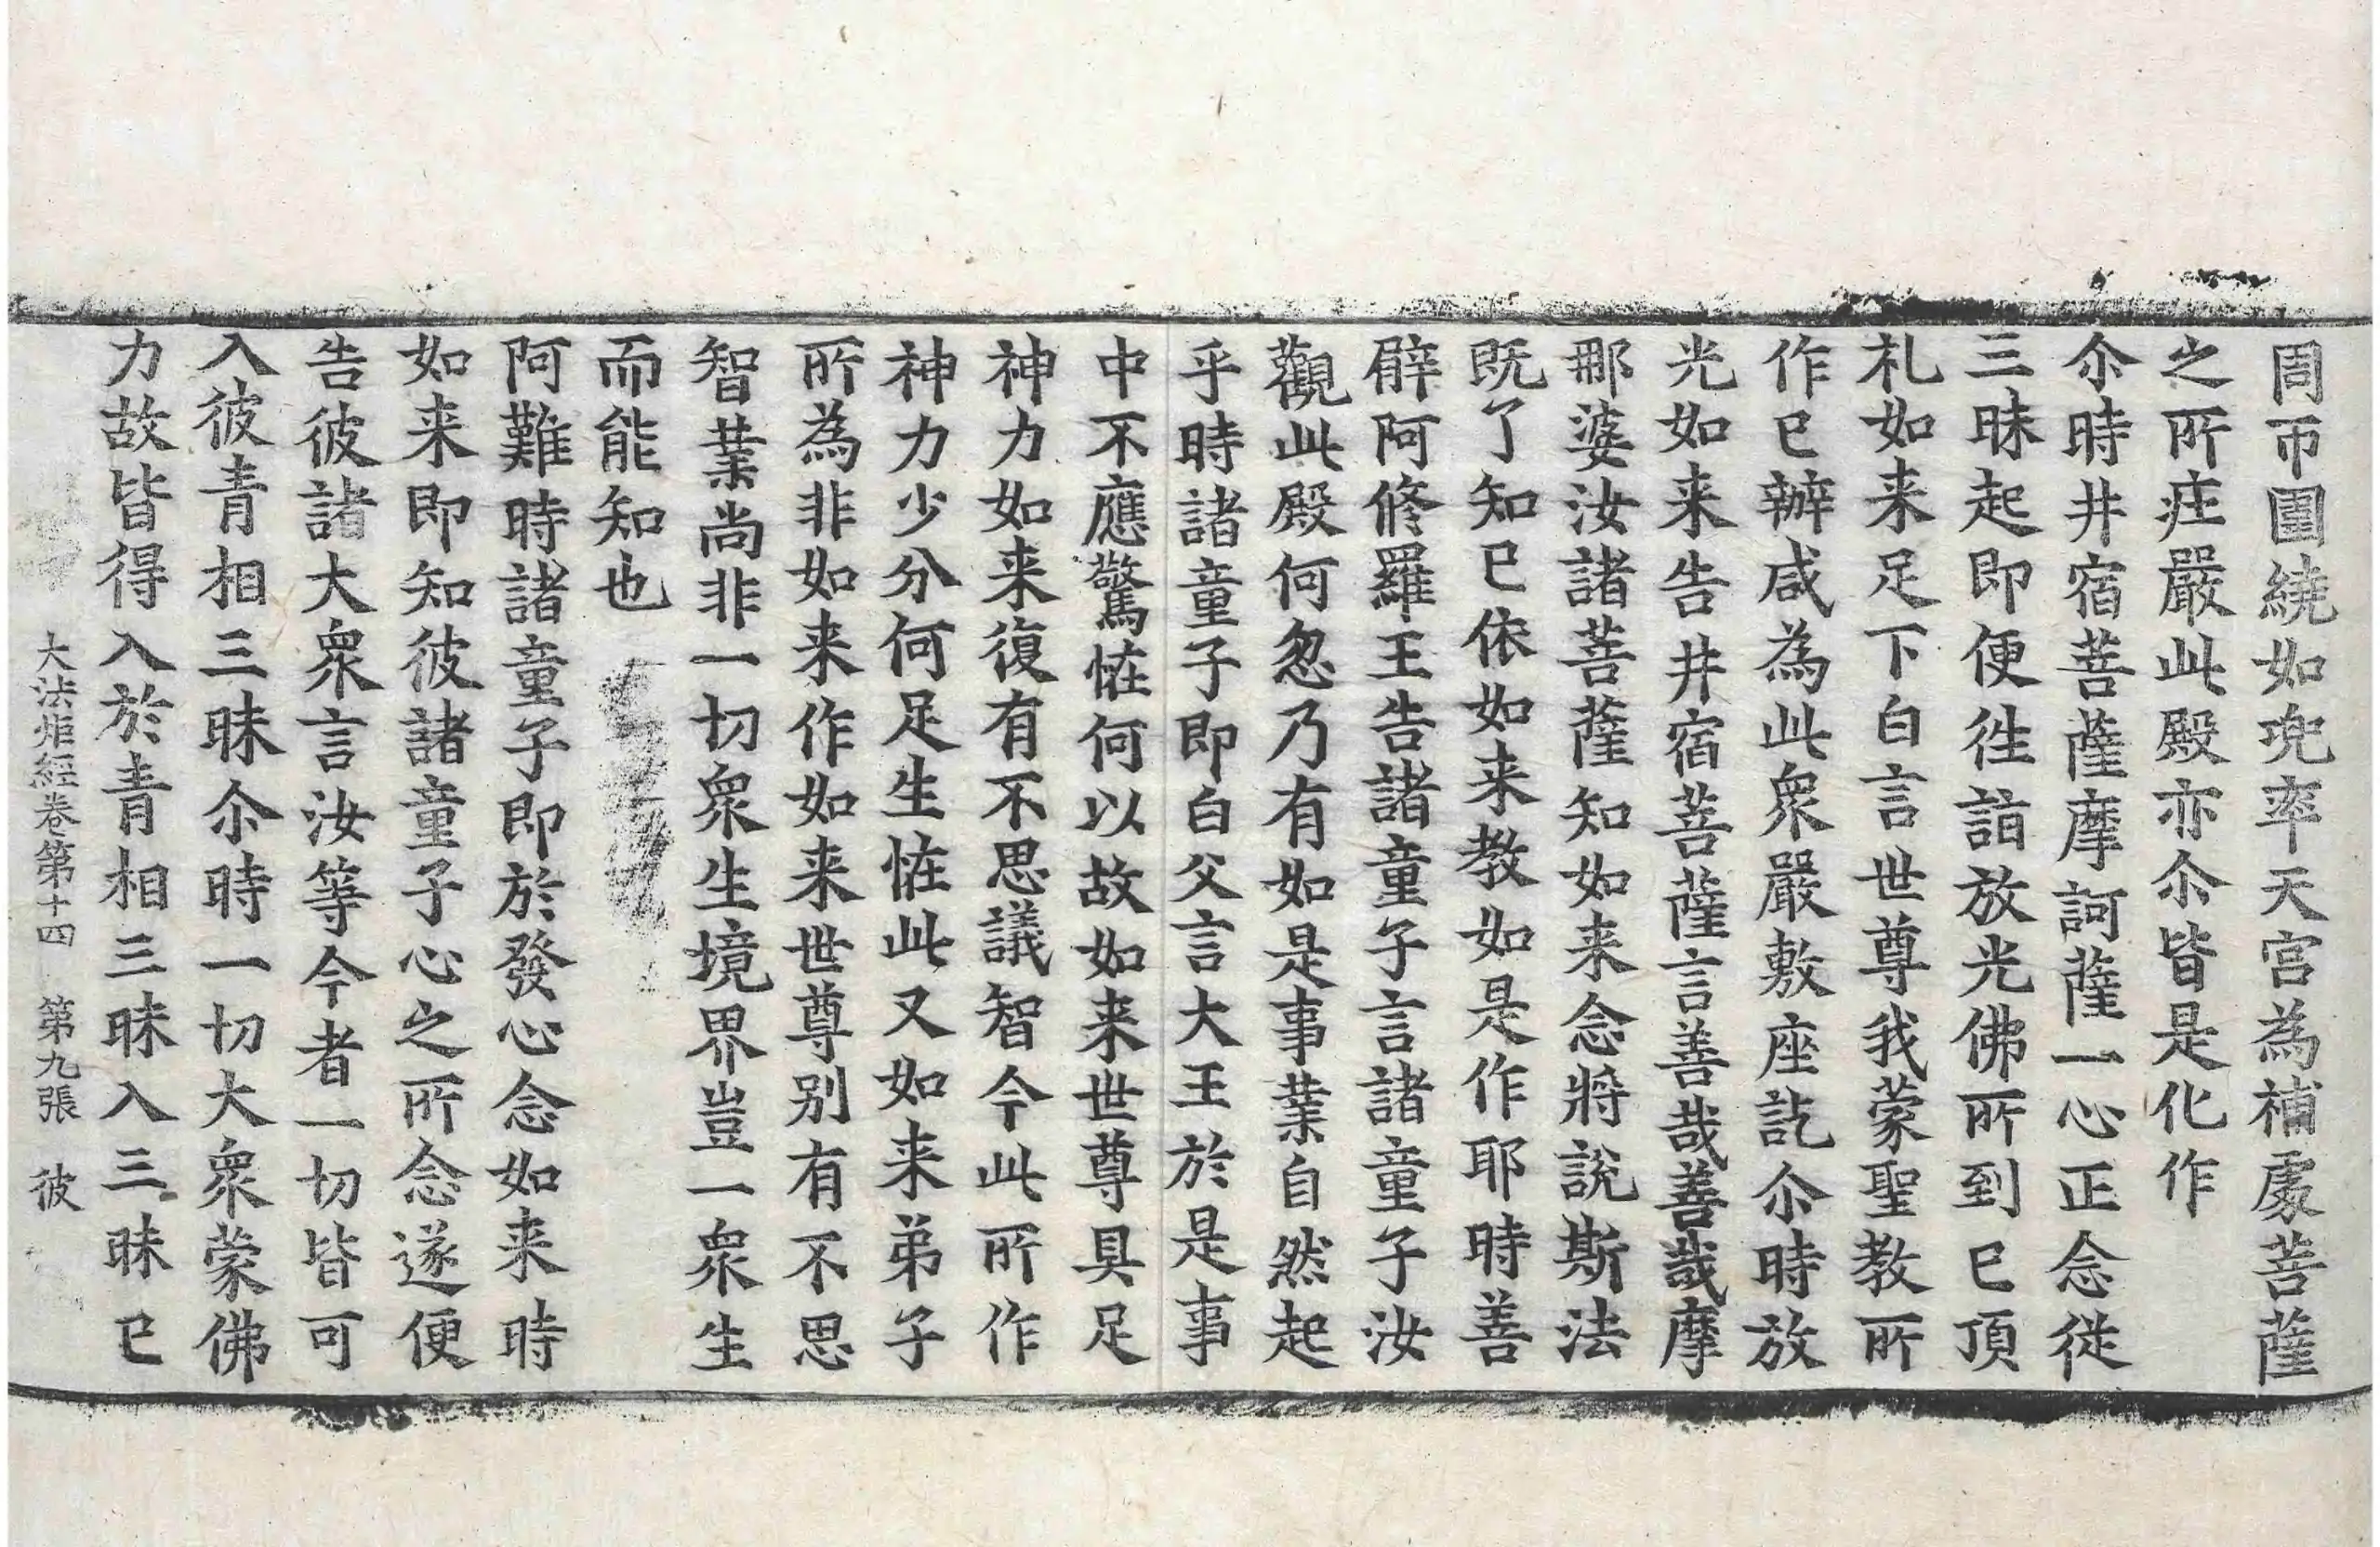 周帀圍繞如兜率天宮為補處菩薩
之所疰嚴此殿亦尒皆是化作
尒時井宿菩薩摩訶薩一心正念従
三昧起即便徃詣放光佛所到已頂
札如来足下白言世尊我蒙聖教所
作已辦咸為此衆嚴敷座訖尒時放
光如来告井宿菩薩言善哉善哉摩
那婆汝諸菩薩知如来念將說斯法
旣了知已依如来教如是作耶時善
辟阿修羅王告諸童子言諸童子汝
觀此殿何忽乃有如是事業自然起
乎時諸童子即白父言大王於是事
中不應驚恠何以故如来世尊具足
神力如来復有不思議智今此所作
神力少分何足生恠此又如来弟子
所為非如来作如来世尊別有不思
智業尚非一切衆生境界豈一衆生
而能知也
阿難時諸童子即於發心念如来時
如来即知彼諸童子心之所念遂便
告彼諸大衆言汝等今者一切皆可
入彼青相三昧尒時一切大衆蒙佛
力故皆得入於青相三昧入三昧已
大法炬經卷第十四 第九張 彼